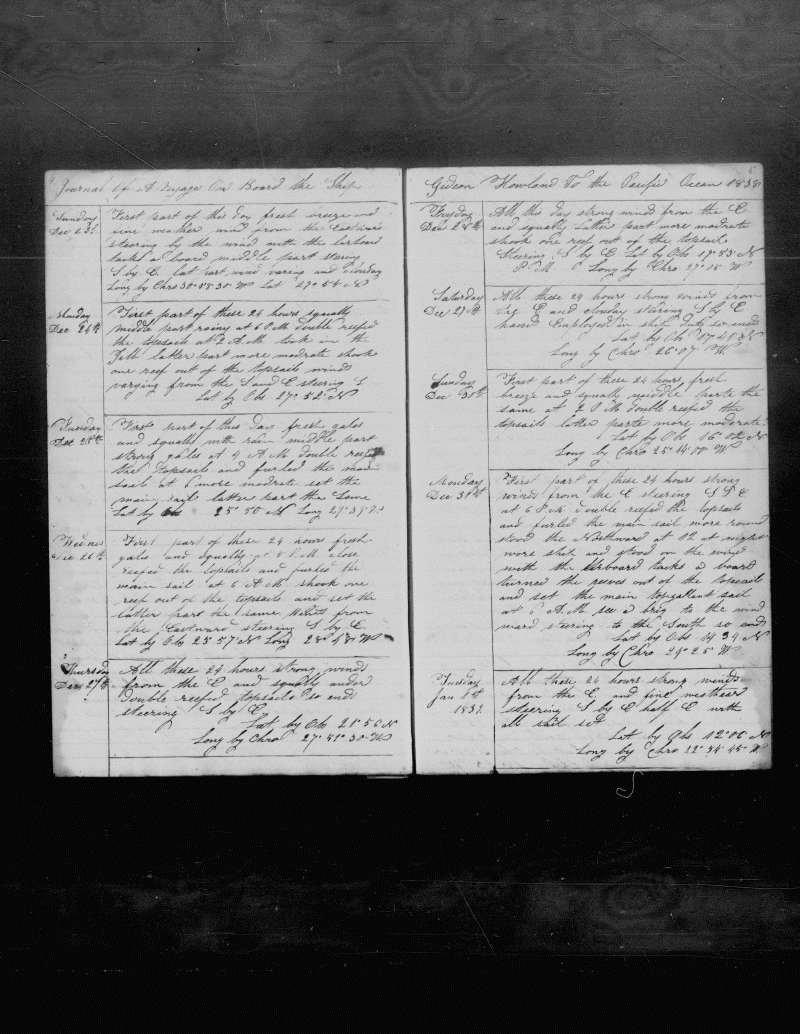 Journal of A Voyage On Board the Ship
Sunday
Dec 23d
First part of this day fresh breeze and
fine weather wind from the Eastward
steering by the wind with the larboard
tacks a board middle part steering
S by E. last part wind varing and Cloudy
Long by Chro 30-58-30 W Lat 27° 54 N
Monday
Dec 24th
First part of these 24 hours squally
middle part rainy at 6 P M double reefed
the topsails at 2 A.M. took in the
latter part more modrate shook
one reef out of the topsails winds
varying from the S and E steering S
Lat by Obs 27° 52 N
Tuesday
Dec 25th
First part of this day fresh gales
and squalls with rain middle part
strong gales at 4 A M double reefed
the topsails and furled the main
sail at 6 more modrate set the
main sail latter part the same
Lat by Obs 25° 50 N Long
Wednes
Dec 26th
First part of these 24 hours fresh
gales and squally at 5 P M close
reefed the topsails and furled the
main sail at 6 A M shook one
reef out of the topsails and set the
latter part the same Winds from
the Eastward steering S by E
Lat by Ob 23° 57 N Long 28° W
Thursday
Dec 27th
All these 24 hours strong winds
from the E and squally under
double reefed topsails so ends
steering S by E
Lat by Ob 21° 56 N
Long by Chro 27° 51 30 W
Gideon Howland To the Pacific Ocean 1838
Fryday
Dec 28th
All this day strong wind from the E
and squally latter part more modrate
shook one reef out of the topsails
Steering S by E Lat by Obs 19° 53 N
P. M Long by Chro 27° 15 W
Saturday
Dec 29th
All these 24 hours strong winds from
the E and cloudy stearing S by E
hands Employed in ships duty so ends
Lat by Ob 17 48 N
Long by Chro 26° 07 W
Sunday
Dec 30th
First part of these 24 hours, fresh
breeze and squally middle parte the
same at 2 P M double reefed the
topsails latter parte more moderate
Lat by Obs 16° 02 N
Long by Chro 25° 14 00 W
Monday
Dec 31st
First part of these 24 hours strong
winds from the E steering S
at 6 P.M. double reefed the topsails
and furled the main sail more round
stood the Northward at 12 at night
more ship and stood on the wind
with the larboard tacks a board
turned the reeves out of the topsails
and set the main topgallant sail
at 6 A.M. see a brig to the wind
ward stering to the South so ends
Lat by Obs 14 34 N
Long by Chro 24° 25 W
Tuesday
Jan 1st
1839
All these 24 hours strong winds
from the E, and fine weather
steering S by E half E with
all sail set
Lat by Obs 12° 06 N
Long by Chro 45 W